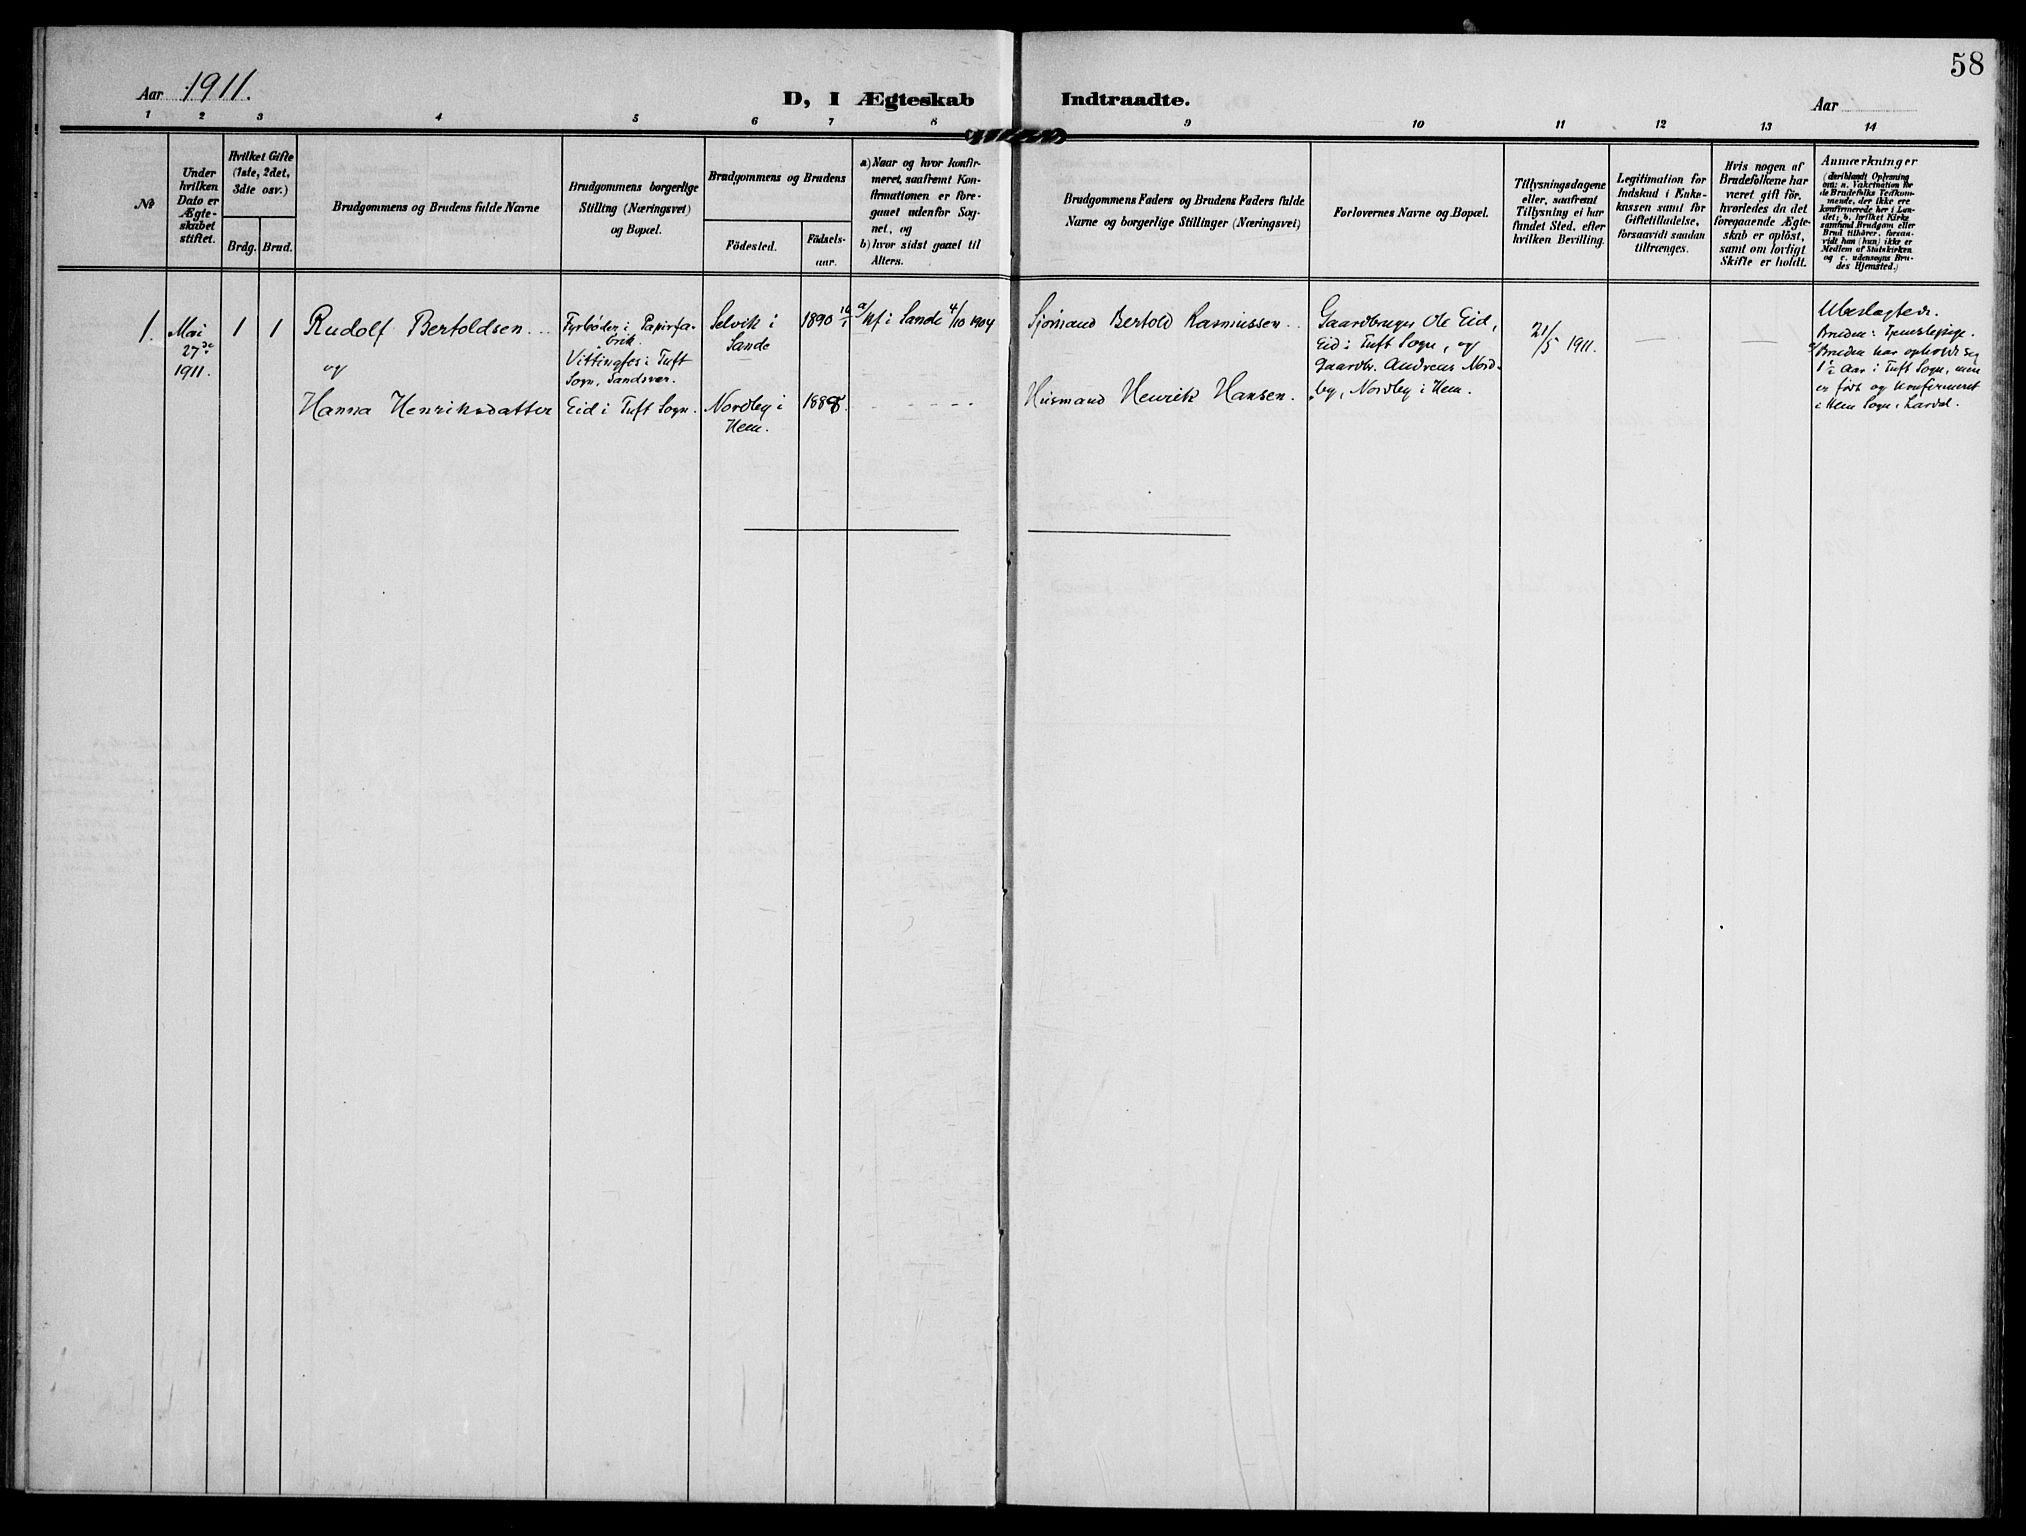 58
Aar 1911.
D, I Ægteskab Indtraadte.
Aar
1 2 3 4 5 6 7 8 9 10 11 12 13 14
No
Under
hvilken
Dato er
Ægte-
skabet
stiftet.
Hvilket Gifte
(1ste, 2det,
3die osv.)
Brdg. Brud.
Brudgommens og Brudens fulde Navne
Brudgommens borgerlige
Stilling (Næringsvei)
og Bopæl.
Brudgommens og Brudens
Födested.
Födsels-
aar.
a) Naar og hvor konfir-
meret, saafremt Kon-
firmationen er fore-
gaaet udenfor Sog-
net, og
b) hvor sidst gaaet til
Alters.
Brudgommens Faders og Brudens Faders fulde
Navne og borgerlige Stillinger (Næringsvei)
Forlovernes Navne og Bopæl.
Tillysningsdagene
eller, saafremt
Tillysning ei har
fundet Sted, efter
hvilken Bevilling.
Legitimation for
Indskud i Enke-
kassen samt for
Giftetilladelse,
forsaavidt saadan
tiltrænges.
Hvis nogen af
Brudefolkene har
været gift för,
hvorledes da det
foregaaende Ægte-
skab er oplöst,
samt om lovligt
Skifte er holdt.
Anmærkninger
(deriblandt Oplysning
om: a. Vakcination for
de Brudefolks Vedkom-
mende, der ikke ere
konfirmerede her i Lan-
det; b. hvilket Kirke-
samfund Brudgom eller
Brud tilhörer, forsaa-
vidt han (hun) ikke er
Medlem af Statskirken
og c. udensogns Bru-
des Hjemsted.)
1.
Mai
27de
1911.
1 1
Rudolf Bertoldsen
og
Hanna Henriksdatter
Fyrbøder i Papirfa-
brik.
Vittingfos i Tuft
Sogn, Sandsvær.
Eid i Tuft Sogn.
Selvik i
Sande
Nordby i
Hem.
1890
1888.
a/ Kf i Sande 4/10 1904
Sjømand Bertold Rasmussen
Husmand Henrik Hansen.
Gaardbruger Ole Eid,
Eid i Tuft Sogn, og
Gaardbr. Andreas Nord-
by, Nordby i Hem.
21/5 1911.
Ubeslægtede.
Bruden: Tjenestepige.
Bruden har opholdt sig
1½ Aar i Tuft Sogn, men
er født og konfirmeret
i Hem Sogn, Lardal.